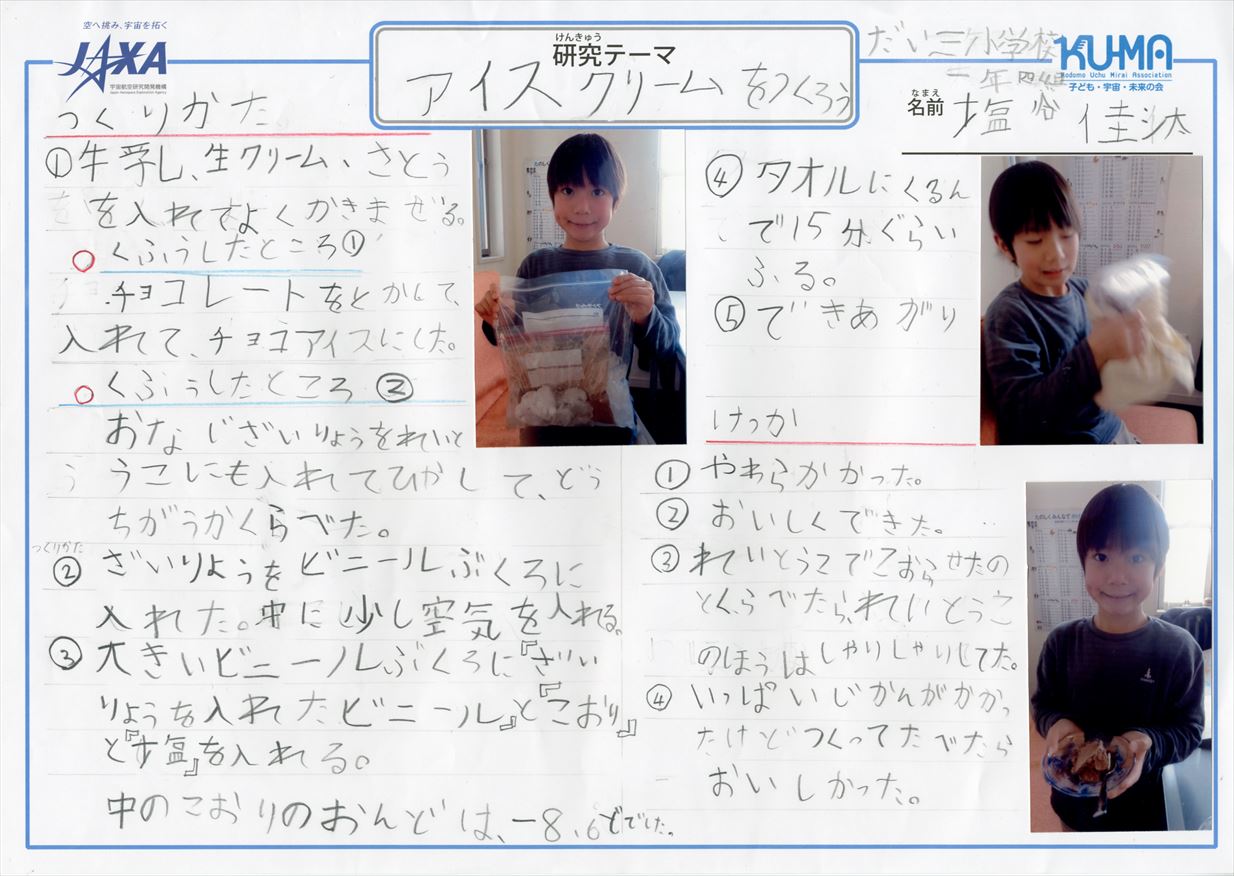 空へ挑み、宇宙を拓く
JAXA
宇宙航空研究開発機構
Japan Aerospace Exploration Agency
けんきゅう
研究テーマ
アイスクリームをつくろう
だい三小学校
二年四組
KUMA
Kodomo Uchu Mirai Association
子ども・宇宙・未来の会
なまえ
名前
塩谷 佳汰
つくりかた
①牛乳し、生クリーム、さとう
を入れてよくかきまぜる。
○くふうしたところ①
チョコレートをとかして、
入れて、チョコアイスにした。
○くふうしたところ②
おなじざいりょうをれいと
うこにも入れてひやして、どう
ちがうかくらべた。
つくりかた
②ざいりょうをビニールぶくろに
入れた。中に少し空気を入れる。
③大きいビニールぶくろに『ざい
りょうを入れたビニール』と『こおり』
と『塩』を入れる。
中のこおりのおんどは、-8.6どでした。
④タオルにくるん
で15分ぐらい
ふる。
⑤できあがり
けっか
①やわらかかった。
②おいしくできた。
③れいとうこでこおらせたの
とくらべたら、れいとうこ
のほうはしゃりしゃりしてた。
④いっぱいじかんがかかっ
たけどつくってたべたら
おいしかった。